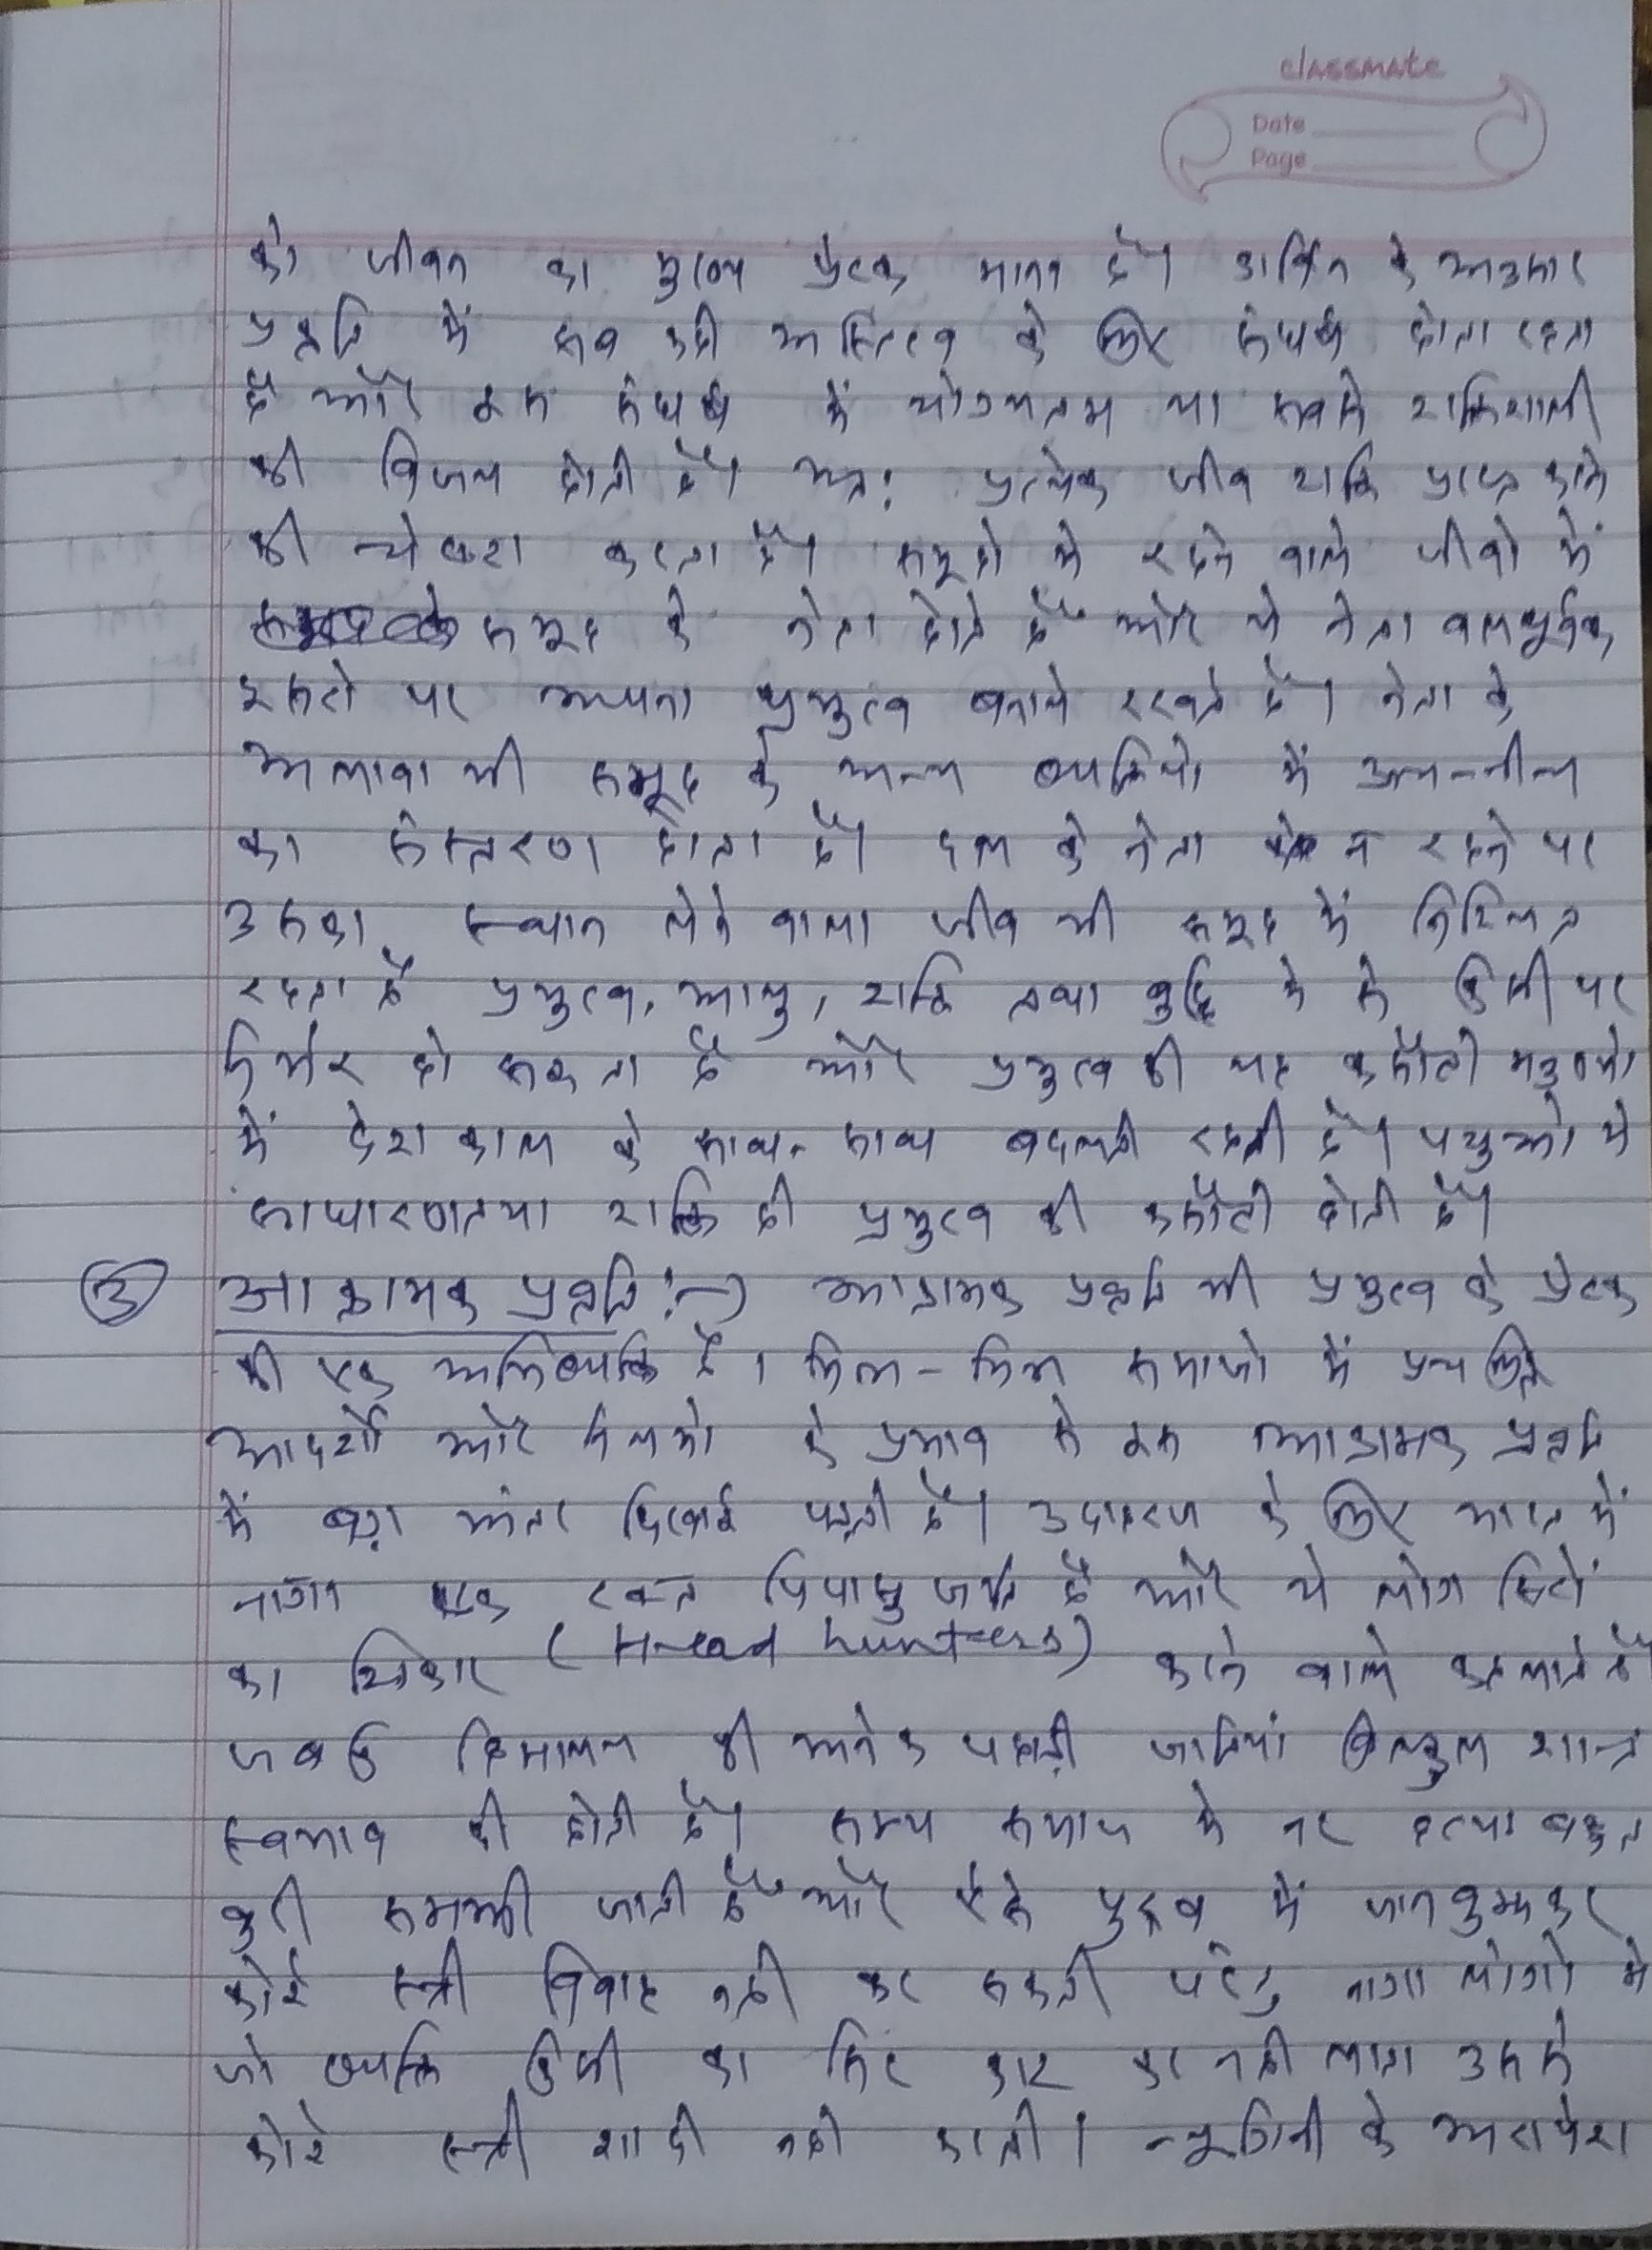 classmate
Date
Page
को जीवन का मुख्य प्रेरक माना है। डार्विन के अनुसार
प्रकृति में सब कहीं अस्तित्व के लिए संघर्ष होता रहता
है और इस संघर्ष में योग्यतम या सबसे शक्तिशाली
की विजय होती है। अतः प्रत्येक जीव शक्ति प्राप्त करने
की चेष्टा करता है। समूहो मे रहने वाले जीवो में
समूह के नेता होते हैं और ये नेता बलपूर्वक
दूसरो पर अपना प्रभुत्व बनाये रखते है। नेता के
अलावा भी समूह के अन्य व्यक्तियो में ऊंच-नीच
का संस्तरण होता है। दल के नेता के न रहने पर
उसका स्थान लेने वाला जीव भी समूह में निश्चित
रहता है प्रभुत्व, आयु, शक्ति तथा बुद्धि मे से किसी पर
निर्भर हो सकता है और प्रभुत्व की यह कसौटी मनुष्यो
में देश काल के साथ-साथ बदलती रहती है। पशुओ मे
साधारणतया शक्ति ही प्रभुत्व की कसौटी होती है।
③ आक्रामक प्रवृति :→ आक्रामक प्रवृति भी प्रभुत्व के प्रेरक
की एक अभिव्यक्ति है। भिन्न-भिन्न समाजो में प्रचलित
आदर्शो और नियमो के प्रभाव से इस आक्रामक प्रवृति
में बड़ा अंतर दिखाई पड़ती है। उदाहरण के लिए भारत में
नागा एक रक्त पिपासु जाति है और ये लोग सिरों
का शिकार (Head hunters) करने वाले कहलाते हैं
जबकि हिमालय की अनेक पहाड़ी जातियां बिल्कुल शान्त
स्वभाव की होती है। सभ्य समाज मे नर हत्या बहुत
बुरी समझी जाती है और ऐसे पुरुष में जानबुझकर
कोई स्त्री विवाह नही कर सकती परंतु नागा लोगो मे
जो व्यक्ति किसी का सिर काट कर नही लाता उससे
कोई स्त्री शादी नही करती। न्यूगिनी के अरापेश